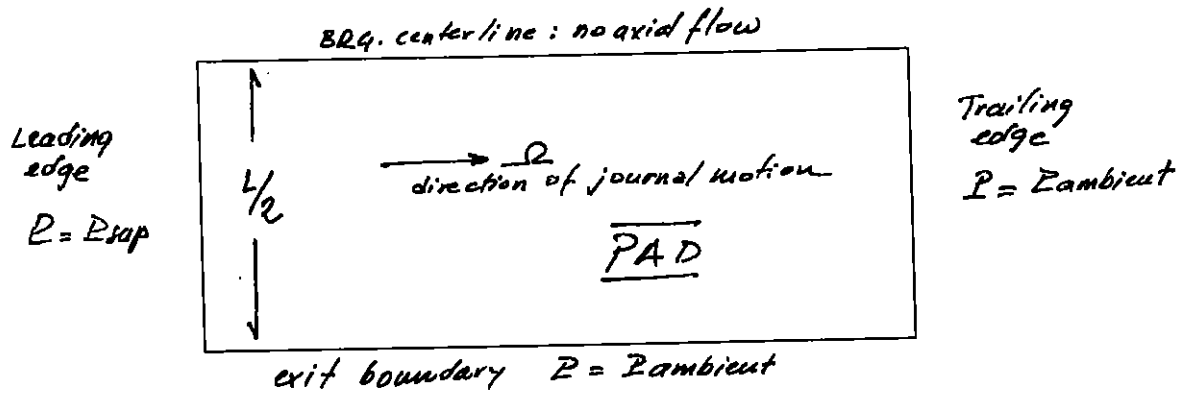 BRG. centerline : no axial flow
Leading
edge
P = Psup
L/2
Ω
direction of journal motion
PAD
Trailing
edge
P = Pambient
exit boundary P = Pambient